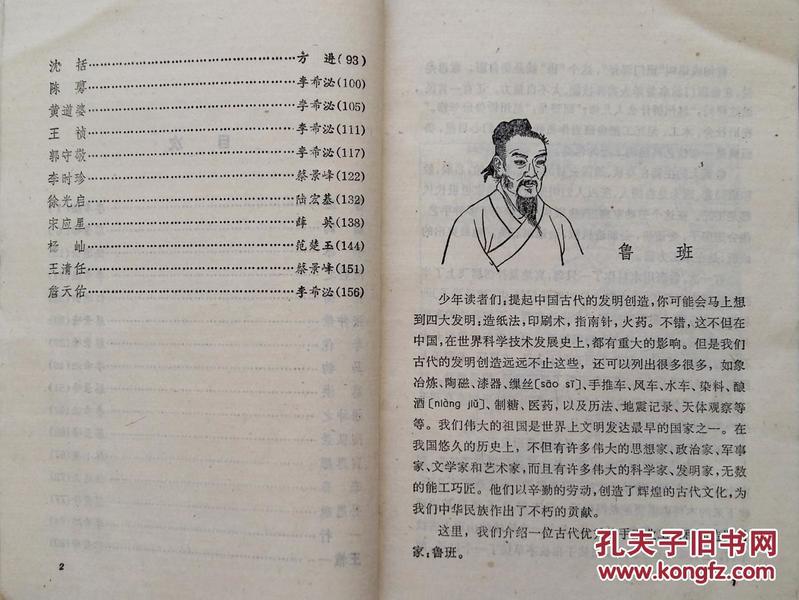 沈括 方进(93)
陈旉 李希泌(100)
黄道婆 李希泌(105)
王祯 李希泌(111)
郭守敬 李希泌(117)
李时珍 蔡景峰(122)
徐光启 陆宏基(132)
宋应星 薛英(138)
杨屾 范楚玉(144)
王清任 蔡景峰(151)
詹天佑 李希泌(156)
2
鲁班
少年读者们，提起中国古代的发明创造，你可能会马上想
到四大发明；造纸法，印刷术，指南针，火药。不错，这不但在
中国，在世界科学技术发展史上，都有重大的影响。但是我们
古代的发明创造远远不止这些，还可以列出很多很多，如象
冶炼、陶磁、漆器、缫丝〔sāo sī〕、手推车、风车、水车、染料、酿
酒〔niàng jiǔ〕、制糖、医药，以及历法、地震记录、天体观察等
等。我们伟大的祖国是世界上文明发达最早的国家之一。在
我国悠久的历史上，不但有许多伟大的思想家、政治家、军事
家、文学家和艺术家，而且有许多伟大的科学家、发明家，无数
的能工巧匠。他们以辛勤的劳动，创造了辉煌的古代文化，为
我们中华民族作出了不朽的贡献。
这里，我们介绍一位古代优 手
家：鲁班。
1
孔夫子旧书网
www.kongfz.com